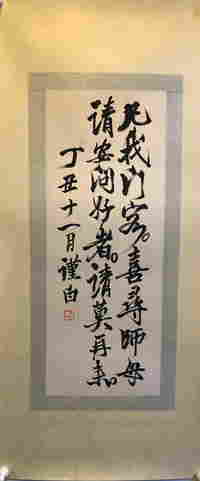 凡我门客。喜寻师母
请安问好者。请莫再来。
丁丑十一月 谨白